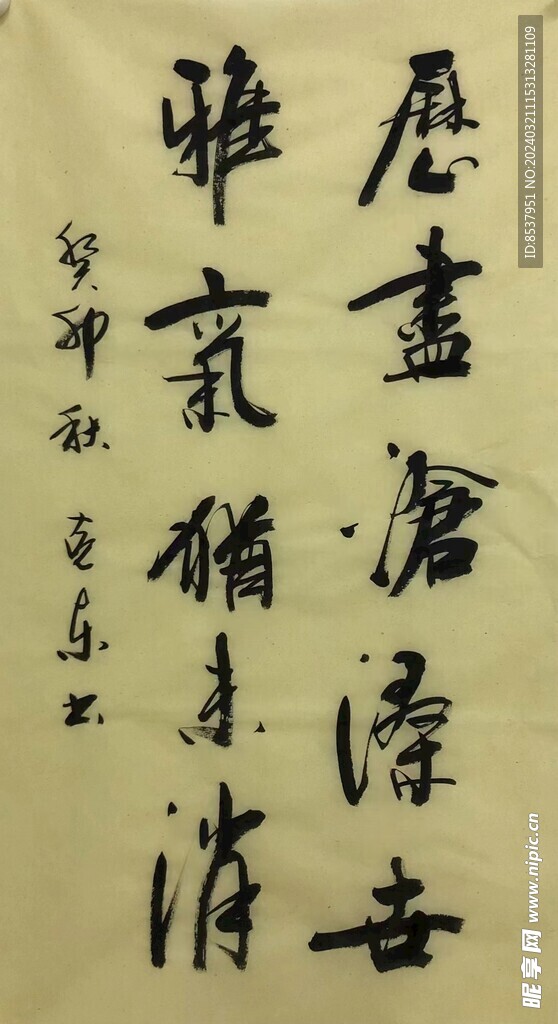 歷盡滄深世
雅氣猶未消
癸卯秋 克东书
ID:8537951 NO:20240321115313281109
昵享网 www.nipic.cn